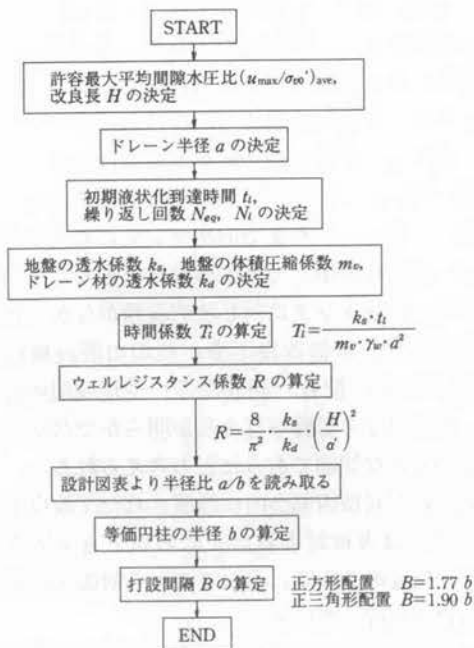 START
許容最大平均間隙水圧比(u_max/σ_v0')_ave,
改良長 H の決定
ドレーン半径 a の決定
初期液状化到達時間 t_l,
繰り返し回数 N_eq, N_l の決定
地盤の透水係数 k_s, 地盤の体積圧縮係数 m_v,
ドレーン材の透水係数 k_d の決定
時間係数 T_l の算定
T_l = k_s・t_l / m_v・γ_w・a²
ウェルレジスタンス係数 R の算定
R = 8/π² ・ k_s/k_d ・ (H/a)²
設計図表より半径比 a/b を読み取る
等価円柱の半径 b の算定
打設間隔 B の算定
正方形配置 B=1.77 b
正三角形配置 B=1.90 b
END